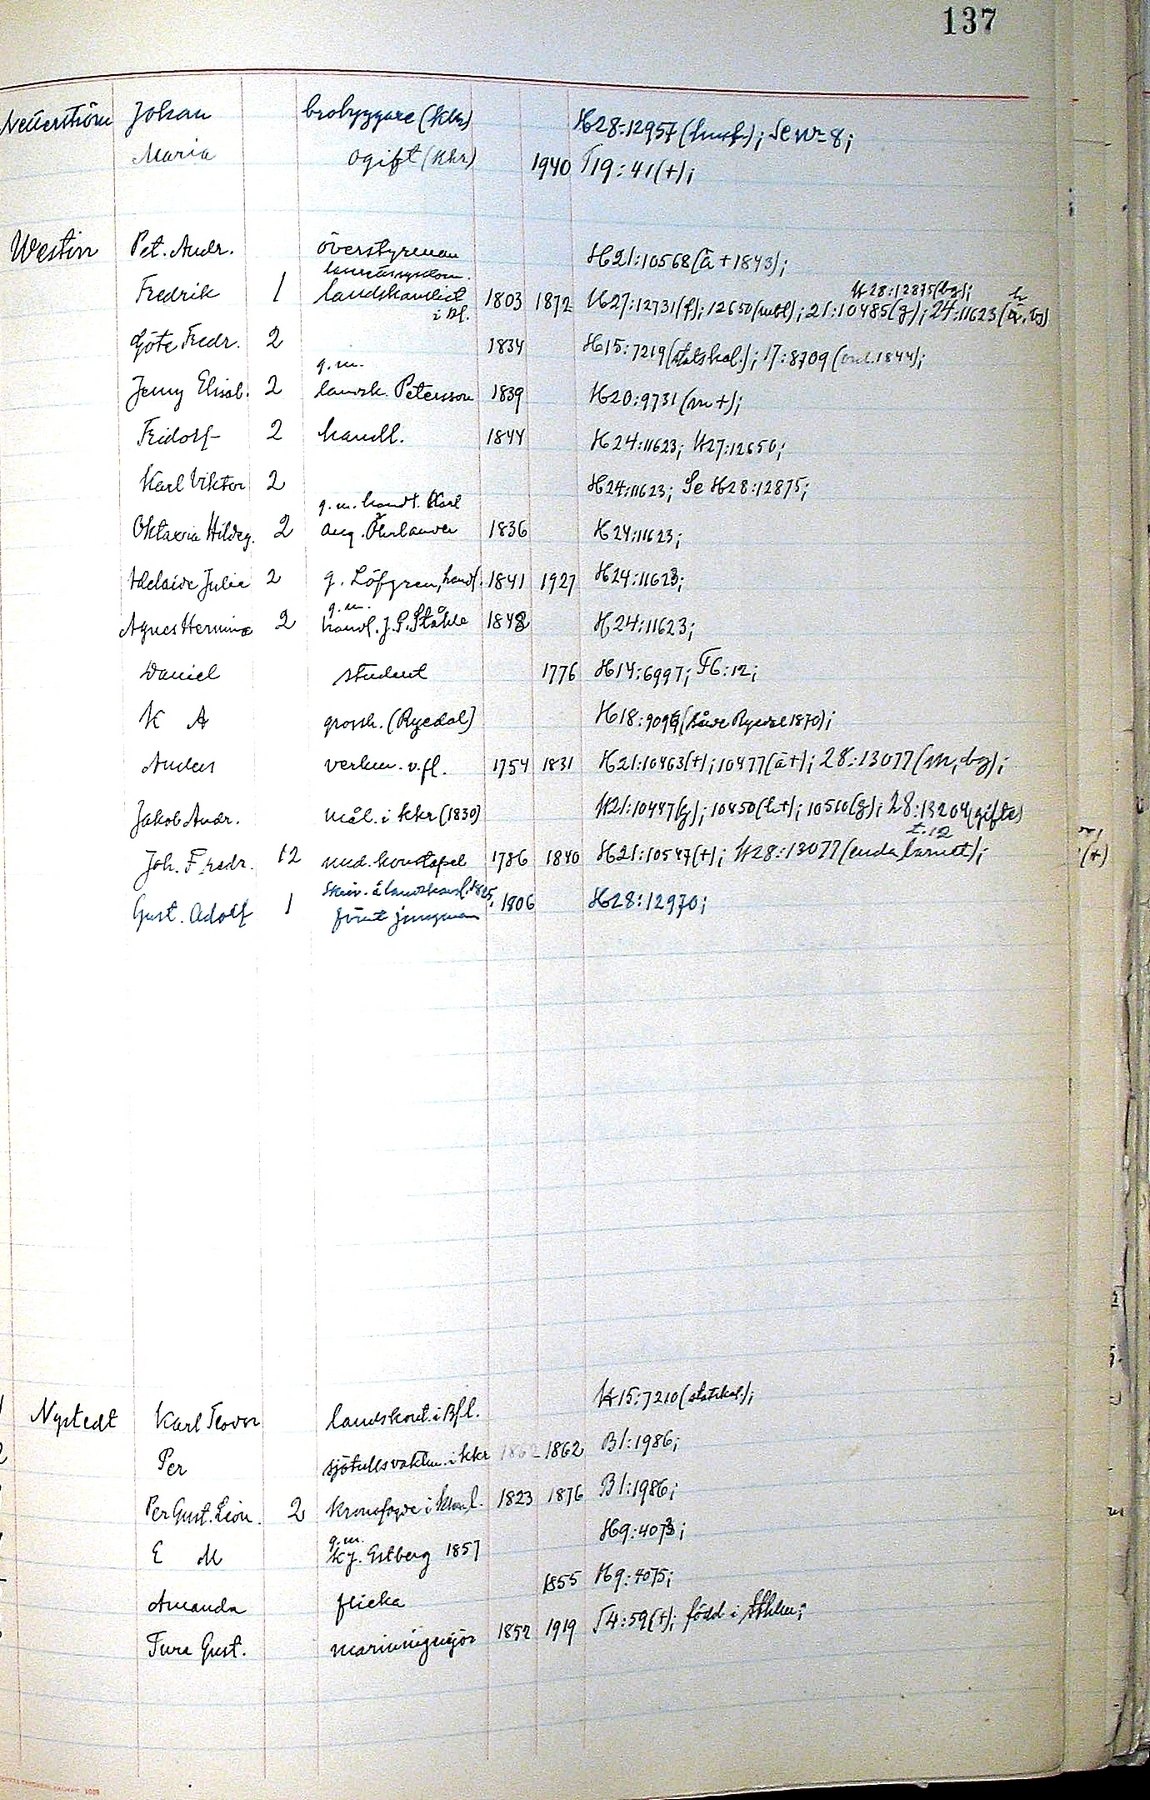 137
Johan brobyggare (Kkr) H28:12957 (husf); Se nr 8;
Maria ogift (Kkr) 1940 T19:41(+);
Westin Pet. Andr. överstyrman H21:10568 (ä+1843);
H28:12875 (bg);
Fredrik 1 landskanslist 1803 1872 H27:12731(f); 12650(utbl); 21:10485(g); 24:11623
i Bl.
Göte Fredr. 2 1834 H15:7219 (statskal.); 17:8709 1844);
g.m.
Jenny Elisab. 2 landsk. Petersson 1839 H20:9731 (m+);
Fridolf 2 handl. 1844 H24:11623; H27:12650;
Karl Viktor 2 H24:11623; Se H28:12875;
g.m. handl. Karl
Oktavia Hildeg. 2 Aug. Österlander 1836 H24:11623;
Adelaide Julia 2 g. Löfgren, handl. 1841 1927 H24:11623;
g.m.
Agnes Hermina 2 handl. J. P. Ståhle 1848 H24:11623;
Daniel student 1776 H14:6997; F6:12;
K A grossh. (Ryedal) H18:9099 Ryedal 1870);
Anders verkm. v. fl. 1754 1831 H21:10463(+); 10477(ä+); 28:13077 (m, bg);
Jakob Andr. mål. i Kkr (1830) H21:10447(g); 10450(h+); 10510(g); 28:13204(giftes)
t.12
Joh. Fredr. 12 und. konstapel 1786 1840 H21:10547(+); H28:13077 (enda barnet);
Skriv. å landskansl. 1825,
Gust. Adolf 1 förut jungman 1806 H28:12970;
Nystedt Karl Teodor landskont. i Bfl. H15:7210 (statskal);
Per sjötullsvaktm. i Kkr 1862 1862 B1:1986;
Per Gust. Leon. 2 kronofogde i 1823 1876 B1:1986;
g.m.
E M kh. Estberg 1857 H9:4073;
Amanda flicka 1855 H9:4075;
Ture Gust. mariningenjör 1852 1919 T4:59(+); född i Sthlm;